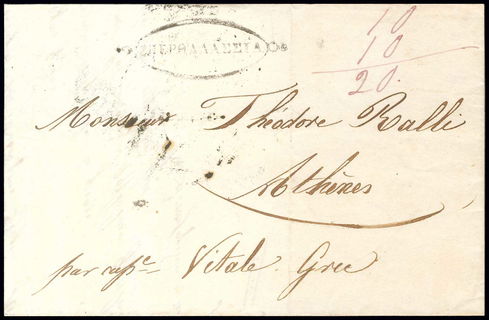 ΥΠΕΡΘΑΛΑΣΣΙΑ
10
10
20.
Monsieur Théodore Ralli
Athènes
par capᵉ Vitale. Grec